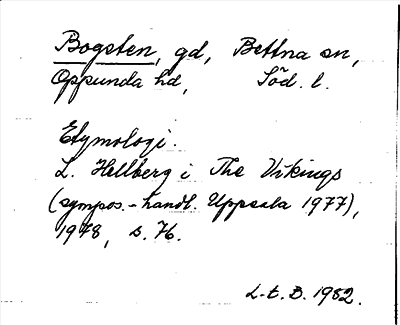 Bogsten, gd, Bettna sn,
Oppunda hd, Söd. l.
Etymologi.
L. Hellberg i The Vikings
(sympos.-handl. Uppsala 1977),
1978, s. 76.
L-E. B. 1982.